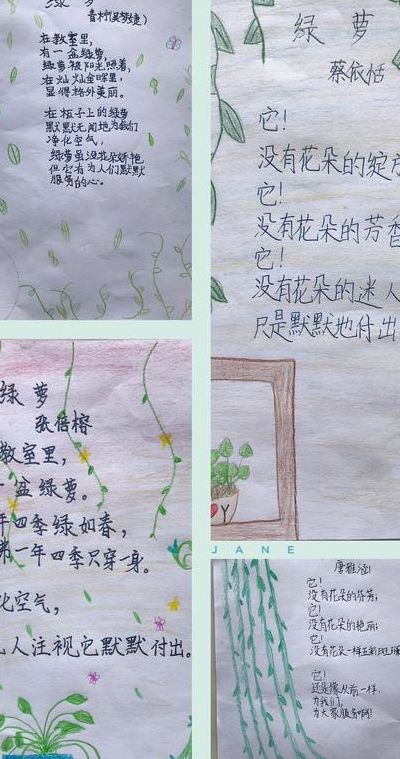 绿 萝
在教室里，
有一盆绿萝，
绿萝被阳光照着，
在灿灿金晖里，
显得格外美丽。
在柜子上的绿萝
默默无闻地为我们
净化空气，
绿萝虽没花朵娇艳
但它有为人们默默
服务的心。
绿 萝
蔡依恬
它！
没有花朵的绽放
它！
没有花朵的芳香
它！
没有花朵的迷人
只是默默地付出
绿 萝
张倍榕
教室里，
盆绿萝。
年四季绿如春，
第一年四季只穿一身。
化空气，
人注视它默默付出。
JANE
唐雅涵
它！
没有花朵的芬芳；
它！
没有花朵的艳丽；
它！
没有花朵一样五彩斑斓
它！
还是像从前一样，
为我们，
为大家服务啊！